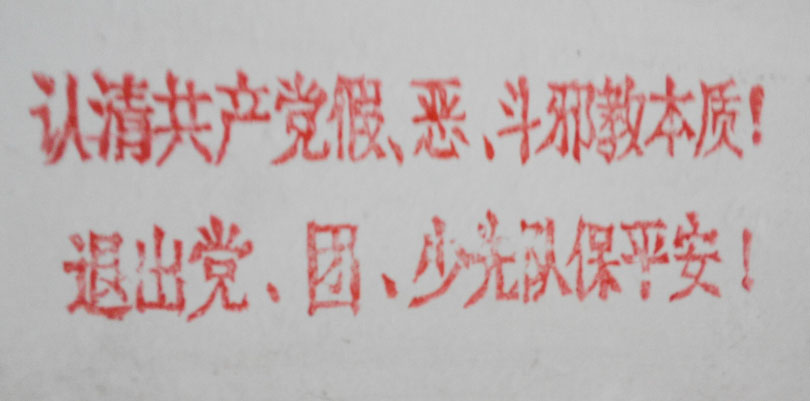 认清共产党假、恶、斗邪教本质！
退出党、团、少先队保平安！